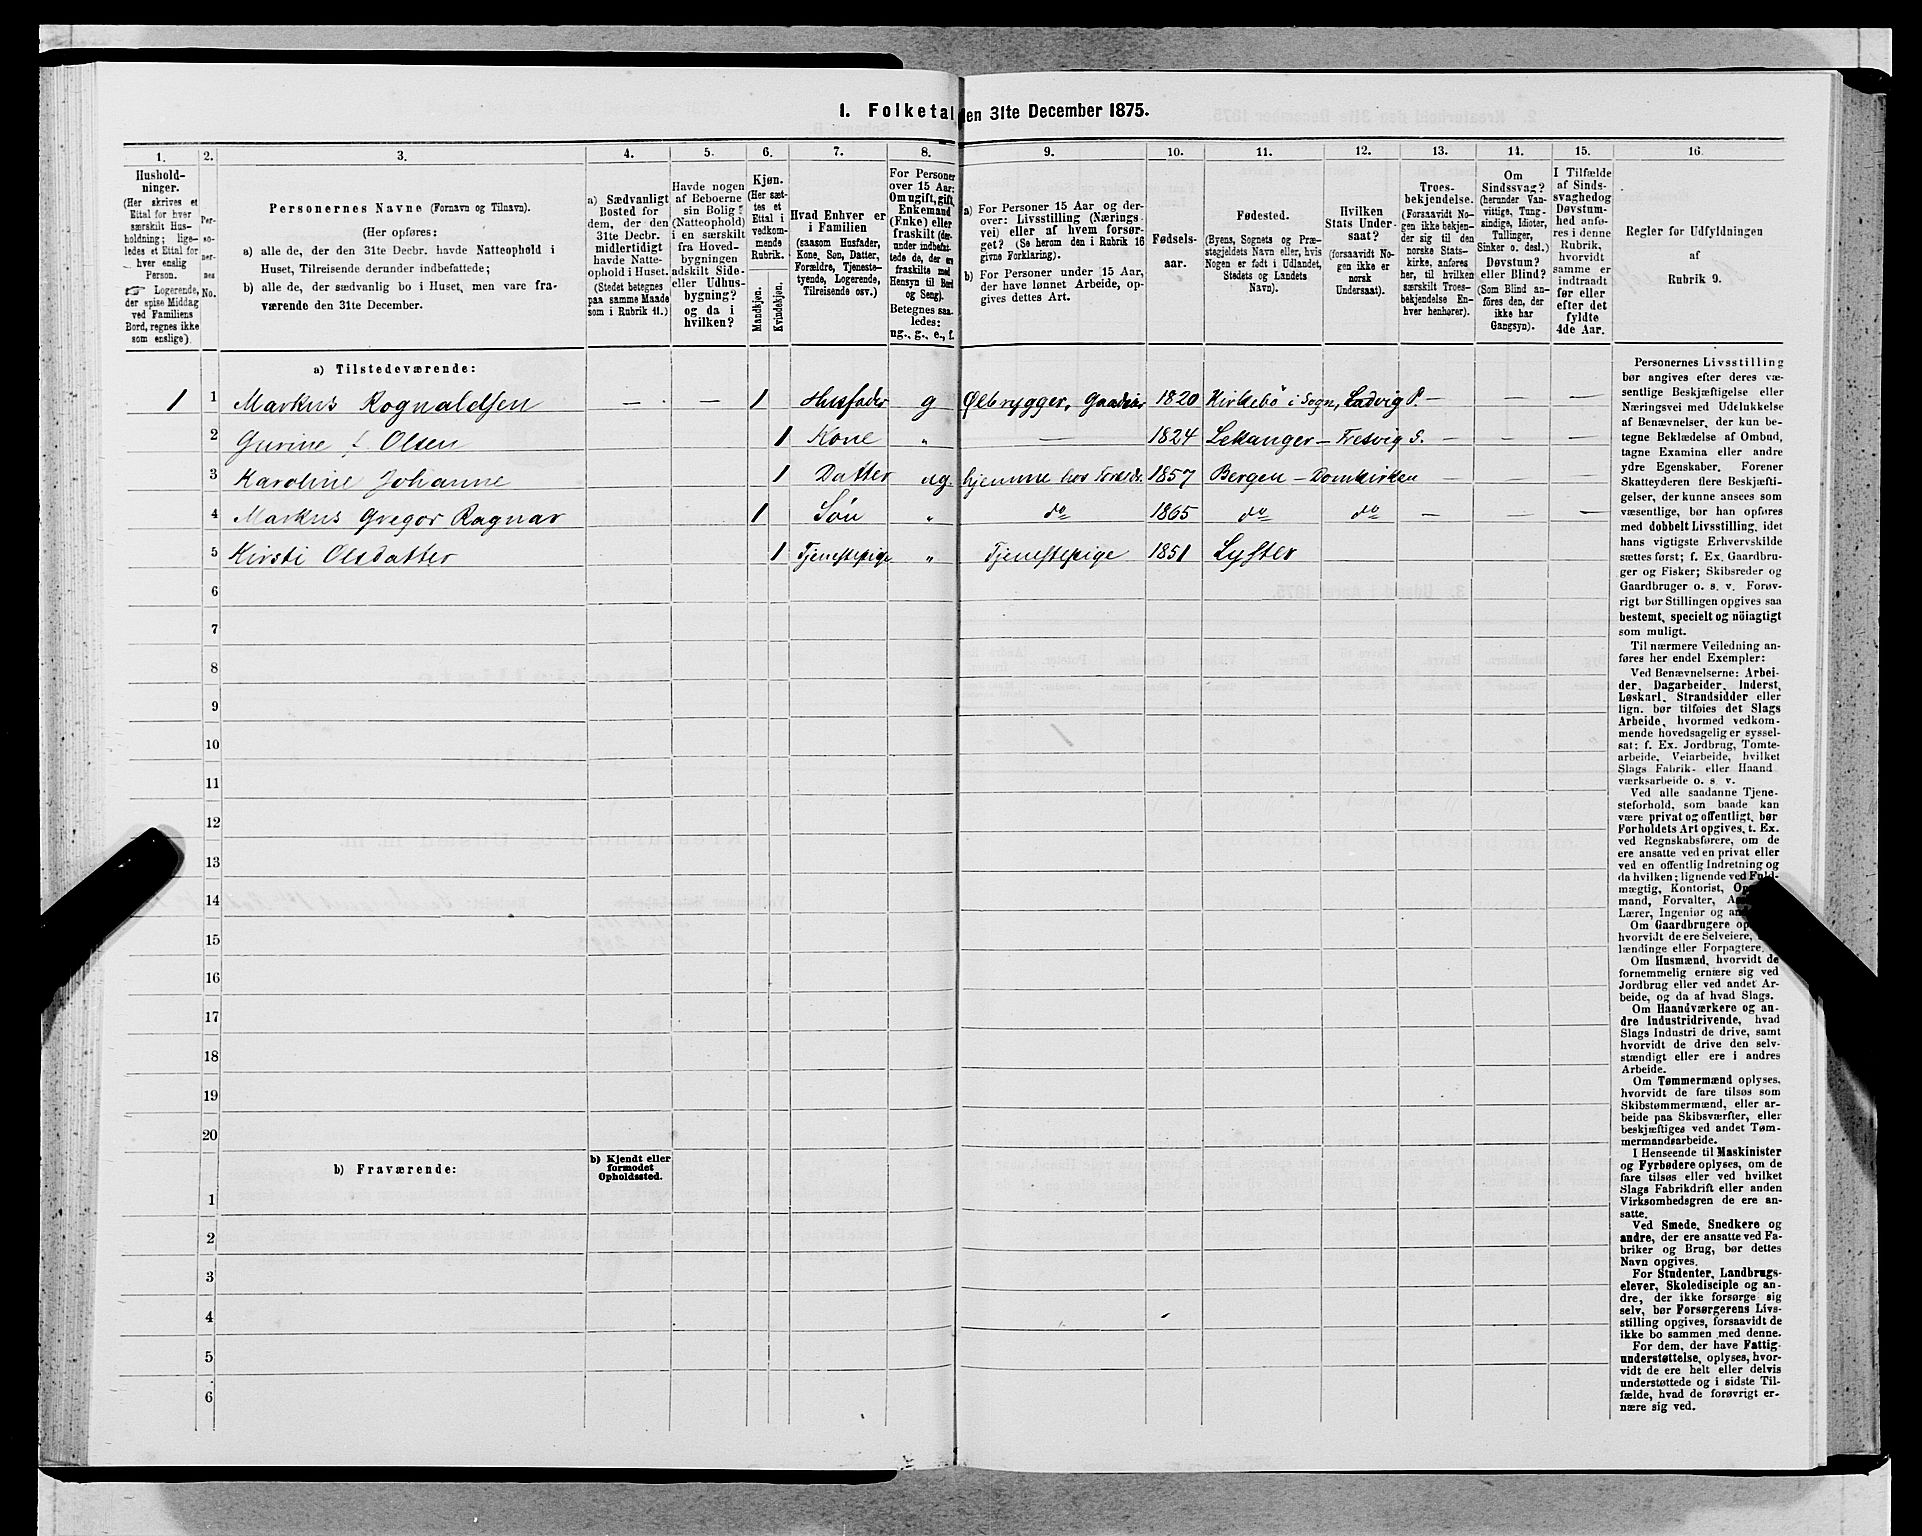 1. Folketal den 31te December 1875.
1.
Hushold-
ninger.
(Her skrives et
Ettal for hver
særskilt Hus-
holdning; lige-
ledes et Ettal for
hver enslig
Person.
☞ Logerende,
der spise Middag
ved Familiens
Bord, regnes ikke
som enslige).
2.
Per-
so-
ner-
nes
No.
3.
Personernes Navne (Fornavn og Tilnavn).
(Her opføres:
a) alle de, der den 31te Decbr. havde Natteophold i
Huset, Tilreisende derunder indbefattede;
b) alle de, der sædvanlig bo i Huset, men vare fra-
værende den 31te December.
4.
a) Sædvanligt
Bosted for
dem, der den
31te Decbr.
midlertidigt
havde Natte-
ophold i Huset.
(Stedet betegnes
paa samme Maade
som i Rubrik 11.)
5.
Havde nogen
af Beboerne
sin Bolig
(Natteophold)
i en særskilt
fra Hoved-
bygningen
adskilt Side-
eller Udhus-
bygning?
og da i
hvilken?
6.
Kjøn.
(Her sæt-
tes et
Ettal i
vedkom-
mende
Rubrik.
Mandkjøn.
Kvindekjøn.
7.
Hvad Enhver er
i Familien
(saasom Husfader,
Kone, Søn, Datter,
Forældre, Tjeneste-
tyende, Logerende,
Tilreisende osv.)
8.
For Personer
over 15 Aar:
Om ugift, gift,
Enkemand
(Enke) eller
fraskilt (der-
under indbefat-
tede de, der er
fraskilte med
Hensyn til Bord
og Seng).
Betegnes saa-
ledes:
ug., g., e., f.
9.
a) For Personer 15 Aar og der-
over: Livsstilling (Nærings-
vei) eller af hvem forsør-
get? (Se herom den i Rubrik 16
givne Forklaring).
b) For Personer under 15 Aar,
der have lønnet Arbeide, op-
gives dettes Art.
10.
Fødsels-
aar.
11.
Fødested.
(Byens, Sognets og Præ-
stegjeldets Navn eller, hvis
Nogen er født i Udlandet,
Stedets og Landets
Navn).
12.
Hvilken
Stats Under-
saat?
(forsaavidt No-
gen ikke er
norsk
Undersaat).
13.
Troes-
bekjendelse.
(Forsaavidt No-
gen ikke bekjen-
der sig til den
norske Stats-
kirke, anføres
her, til hvilken
særskilt Troes-
bekjendelse En-
hver henhører).
14.
Om
Sindssvag?
(herunder Van-
vittige, Tung-
sindige, Idioter,
Tullinger,
Sinker o. desl.)
Døvstum?
eller Blind?
(Som Blind an-
føres den, der
ikke har
Gangsyn).
15.
I Tilfælde
af Sinds-
svaghed og
Døvstum-
hed anfø-
res i denne
Rubrik,
hvorvidt
samme er
indtraadt
før eller
efter det
fyldte
4de Aar.
16.
Regler for Udfyldningen
af
Rubrik 9.
a) Tilstedeværende:
1 1 Markus Rognaldsen — — 1 Husfader g Ølbrygger, Gaardeier 1820 Kirkebø i Sogn, Ladvig P. — — —
2 Gurine f. Olsen 1 Kone „ — 1824 Lekanger — Fresvig S. — — —
3 Karoline Johanne 1 Datter ug. hjemme hos Foreldr. 1857 Bergen — Domkirken — — —
4 Markus Gregor Ragnar 1 Søn „ do 1865 do do — — —
5 Kirsti Olsdatter 1 Tjenestepige „ Tjenestepige 1851 Lyster
6
7
8
9
10
11
12
13
14
15
16
17
18
19
20
b) Fraværende:
b) Kjendt eller
formodet
Opholdssted.
1
2
3
4
5
6
Personernes Livsstilling
bør angives efter deres væ-
sentlige Beskjæftigelse eller
Næringsvei med Udelukkelse
af Benævnelser, der kun be-
tegne Beklædelse af Ombud,
tagne Examina eller andre
ydre Egenskaber. Forener
Skatteyderen flere Beskjæfti-
gelser, der kunne ansees som
væsentlige, bør han opføres
med dobbelt Livsstilling, idet
hans vigtigste Erhvervskilde
sættes først; f. Ex. Gaardbru-
ger og Fisker; Skibsreder og
Gaardbruger o. s. v. Forøv-
rigt bør Stillingen opgives saa
bestemt, specielt og nöiagtigt
som muligt.
Til nærmere Veiledning an-
føres her endel Exempler:
Ved Benævnelserne: Arbei-
der, Dagarbeider, Inderst,
Løskarl, Strandsidder eller
lign. bør tilføies det Slags
Arbeide, hvormed vedkom-
mende hovedsagelig er syssel-
sat; f. Ex. Jordbrug, Tomte-
arbeide, Veiarbeide, hvilket
Slags Fabrik- eller Haand
værksarbeide o. s. v.
Ved alle saadanne Tjene-
steforhold, som baade kan
være privat og offentligt, bør
Forholdets Art opgives, t. Ex.
ved Regnskabsførere, om de
ere ansatte ved en privat eller
ved en offentlig Indretning og
da hvilken; lignende ved Fuld-
mægtig, Kontorist,
mand, Forvalter,
Lærer, Ingeniør og
Om Gaardbrugere
hvorvidt de ere Selveiere,
lændinge eller Forpagtere.
Om Husmænd, hvorvidt de
fornemmelig ernære sig ved
Jordbrug eller ved andet Ar-
beide, og da af hvad Slags.
Om Haandværkere og an-
dre Industridrivende, hvad
Slags Industri de drive, samt
hvorvidt de drive den selv-
stændigt eller ere i andres
Arbeide.
Om Tømmermænd oplyses,
hvorvidt de fare tilsøs som
Skibstømmermænd, eller ar-
beide paa Skibsværfter, eller
beskjæftiges ved andet Tøm-
mermandsarbeide.
I Henseende til Maskinister
og Fyrbødere oplyses, om de
fare tilsøs eller ved hvilket
Slags Fabrikdrift eller anden
Virksomhedsgren de ere an-
satte.
Ved Smede, Snedkere og
andre, der ere ansatte ved Fa-
briker og Brug, bør dettes
Navn opgives.
For Studenter, Landbrugs-
elever, Skoledisciple og an-
dre, der ikke forsørge sig
selv, bør Forsørgerens Livs-
stilling opgives, forsaavidt de
ikke bo sammen med denne.
For dem, der have Fattig-
understøttelse, oplyses, hvor-
vidt de ere helt eller delvis
understøttede og i sidste Til-
fælde, hvad de forøvrigt er-
nære sig ved.